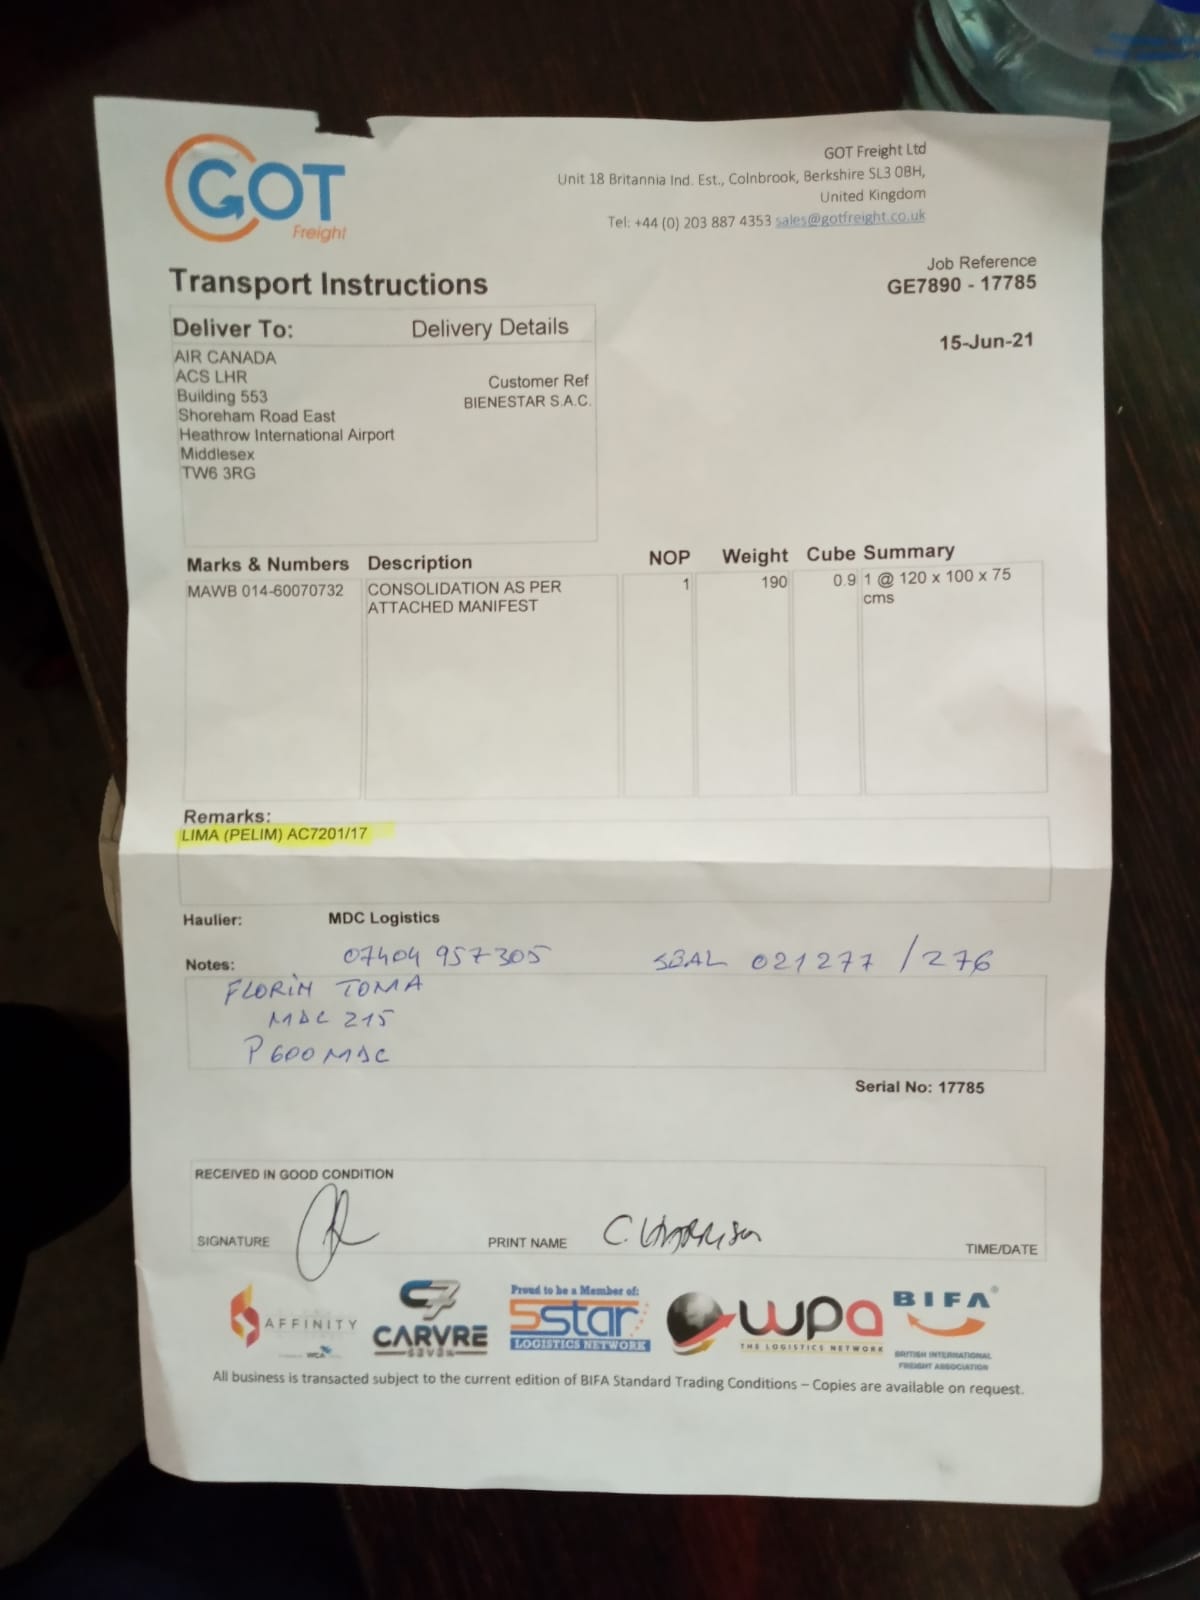 GOT
Freight
GOT Freight Ltd
Unit 18 Britannia Ind. Est., Colnbrook, Berkshire SL3 0BH,
United Kingdom
Tel: +44 (0) 203 887 4353 sales@gotfreight.co.uk
Job Reference
GE7890 - 17785
Transport Instructions
15-Jun-21
Deliver To: Delivery Details
AIR CANADA
ACS LHR
Building 553
Shoreham Road East
Heathrow International Airport
Middlesex
TW6 3RG
Customer Ref
BIENESTAR S.A.C.
Marks & Numbers Description NOP Weight Cube Summary
MAWB 014-60070732 CONSOLIDATION AS PER 1 190 0.9 1 @ 120 x 100 x 75
ATTACHED MANIFEST cms
Remarks:
LIMA (PELIM) AC7201/17
Haulier: MDC Logistics
Notes: 07404 957305 SBAL 021277 / 276
FLORIN TOMA
MDC 215
P600MDC
Serial No: 17785
RECEIVED IN GOOD CONDITION
SIGNATURE PRINT NAME C. HARRISON TIME/DATE
AFFINITY
WCA
CARVRE
SEVEN
Proud to be a Member of:
5star
LOGISTICS NETWORK
wpa
THE LOGISTICS NETWORK
BIFA
BRITISH INTERNATIONAL
FREIGHT ASSOCIATION
All business is transacted subject to the current edition of BIFA Standard Trading Conditions – Copies are available on request.